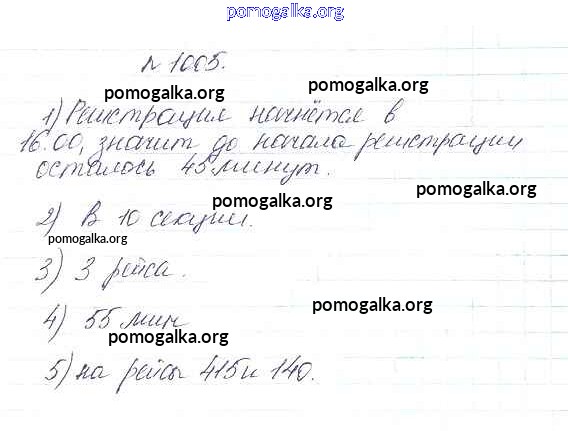 pomogalka.org
№ 1005.
pomogalka.org
pomogalka.org
1) Регистрация начнётся в
16.00, значит до начала регистрации
осталось 45 минут.
pomogalka.org
pomogalka.org
2) В 10 секции.
pomogalka.org
3) 3 рейса.
pomogalka.org
4) 55 мин
pomogalka.org
5) на рейсы 415 и 140.